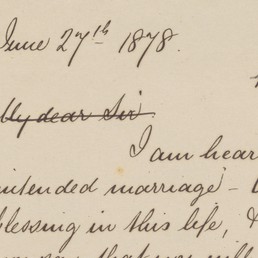 June 27th 1878.
My dear Sir
I am hear
intended marriage -
blessing in this life,